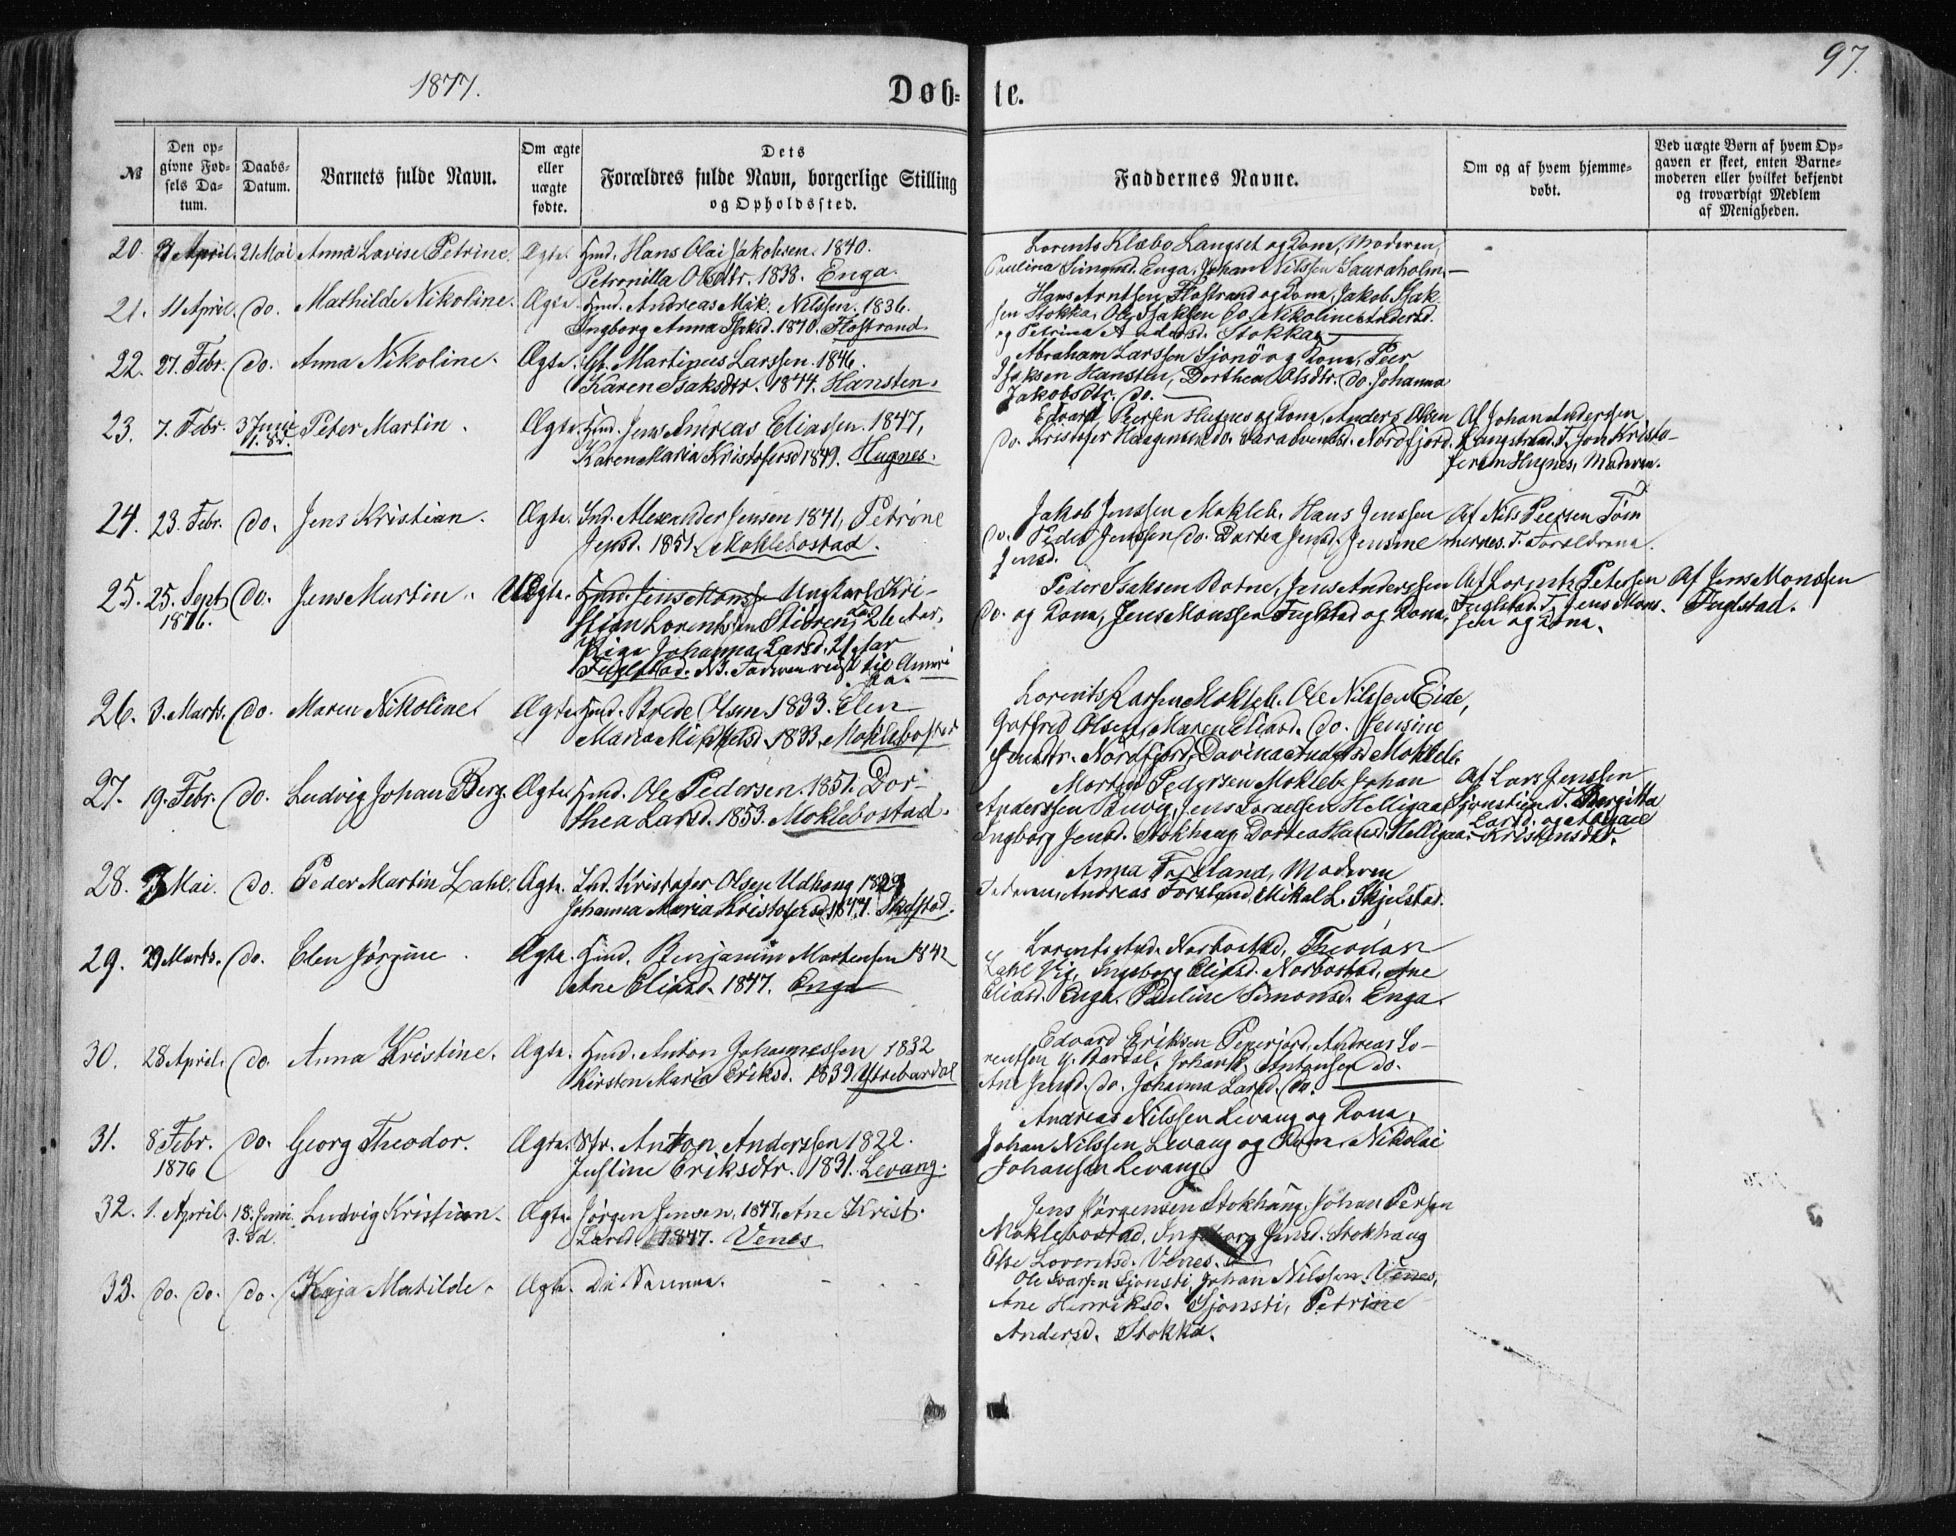 1877.
Døb-
te.
97.
№
Den op-
givne Fød-
sels Da-
tum.
Daabs-
Datum.
Barnets fulde Navn.
Om ægte
eller
uægte
fødte.
Dets
Forældres fulde Navn, borgerlige Stilling
og Opholdssted.
Faddernes Navne.
Om og af hvem hjemme-
døbt.
Ved uægte Børn af hvem Op-
gaven er skeet, enten Barne-
moderen eller hvilket bekjendt
og troværdigt Medlem
af Menigheden.
20. 3 April. 21 Mai Anna Lovise Petrine. Ægte. Hmd. Hans Olai Jakobsen. 1840.
Petronilla Olsdtr. 1838. Enga.
Lorents Klæbo Langset og Kona, Moderen,
Paulina Simonsd. Enga, Johan Nilssen Sauraholm.
21. 11 April. do. Mathilde Nikoline. Ægte. Hmd. Andreas Mik. Nilssen. 1836.
Ingborg Anna Isaksd. 1840. Flostrand
Hans Arntsen Flostrand og Kona, Jakob Isak
sen Stokka, Ole Isaksen do. Nikoline Andersd.
og Petrina Andersd. Stokka
22. 27. Febr. do. Anna Nikoline. Ægte. Martinus Larssen. 1846.
Karen Isaksdtr. 1844. Hansten.
Abraham Larssen Sjonø og Kona, Peer
Isaksen Hansten, Dorthea Olsdtr. do. Johanna
Jakobsdtr. do.
23. 7. Febr. 3 Juni Peter Martin. Ægte. Hmd. Jens Andreas Eliassen. 1847,
Karen Maria Kristofersd 1849. Hugnes.
Edvard Peersen Hugnes og Kona, Anders Olsen
do. Kristofer Haagensen do. Sara Svendsd. Nordfjord.
Af Johan Anderssen
Langstrand. T. Jon Kristo-
fersen Hugnes, Moderen.
24. 23. Febr. do. Jens Kristian. Ægte. Ind. Alexander Jensen 1841, Petrine
Jensd. 1851. Moklebostad.
Jakob Jenssen Mokleb. Hans Jenssen
do. Peder Jenssen do. Dortea Jensd. Jensine
Jensd.
Af Nils Peersen Tøm
mernes. T. Forældrene.
25. 25. Sept do. Jens Martin. Uægte. Hmd. Jens Monss Ungkarl Kri-
1876.
stian Lorentssen 26 Aar,
Pige Johanna Larsd. 21 Aar
Fuglstad. NB. Faderen reist til Ameri
ka.
Peder Isaksen Botne, Jens Anderssen
do. og Kona, Jens Monssen Fuglstad og Kona.
Af Lorents Petersen
Fuglstad. T. Jens Mons-
sen og Kona.
Af Jens Monssen
Fuglstad.
26. 3. Marts. do. Maren Nikoline. Ægte Hmd. Brede Olsen. 1833. Elen
Maria Mikkelsd. 1833. Moklebostad
Lorents Larsen Mokleb. Ole Nilssen Eide,
Gotfred Olsen, Maren Eliasd. do. Jensine
Jensdtr. Nordfjord, Davina Andersd Mokleb.
27. 19. Febr. do. Ludvig Johan Berg. Ægte. Hmd. Ole Pedersen. 1851. Dor-
thea Larsd. 1853. Moklebostad.
Morten Pedersen Mokleb. Johan
Anderssen Buvig, Jens Helligaa
Ingborg Jensd. Stokhaug, Dortea Hansd. Helligaa.
Af Lars Jenssen
Sjonstien T. Bergitta
Larsd. og
Kristensdtr.
28. 3 Mai. do. Peder Martin Zahl. Ægte. Ind. Kristofer Olsen Udhaug 1829
Johanna Maria Kristofersd. 1844.
Anna Forsland, Moderen
Faderen, Andreas Forsland, Mikal L. Skjelstad.
29. 29 Marts. do. Elen Jørgine. Ægte. Hmd. Benjamin Mortensen 1842
Ane Eliasd. 1847. Enga
Lorents And. Norbostad, Theodor
Zahl Vig, Ingeborg Eliasd. Norbostad, Ane
Eliasd. Enga. Pauline Simonsd. Enga.
30. 28 April. do. Anna Kristine. Ægte. Hmd. Anton Johannessen 1832
Kirsten Maria Eriksd. 1839. Ytrebardal
Edvard Eriksen Andreas Lo-
rentsen Y. Bardal, Johan Antonsen do.
Ane Jensd. do. Johanna Larsd. do.
31. 8 Febr. do. Georg Theodor. Ægte. Anton Anderssen 1822.
1876
Justine Eriksdtr. 1831. Levang.
Andreas Nilssen Levang og Kona,
Johan Nilssen Levang og Kona, Nikolai
Johansen Levang.
32. 1. April. 18. Juni Ludvig Kristian. Ægte. Jørgen Jensen, 1847, Ane Krist.
Larsd. 1847. Venes
Jens Jørgensen Stokhaug, Johan Persen
Moklebostad, Ingeborg Jensd. Stokhaug
Else Lorentsd. Venes.
33. do. do. do. Kaja Matilde. Ægte. Di Samme.
Ole Larsen Sjonsti, Johan Nilssen Venes,
Ane Henriksd. Sjonsti, Petrine
Andersd. Stokka.